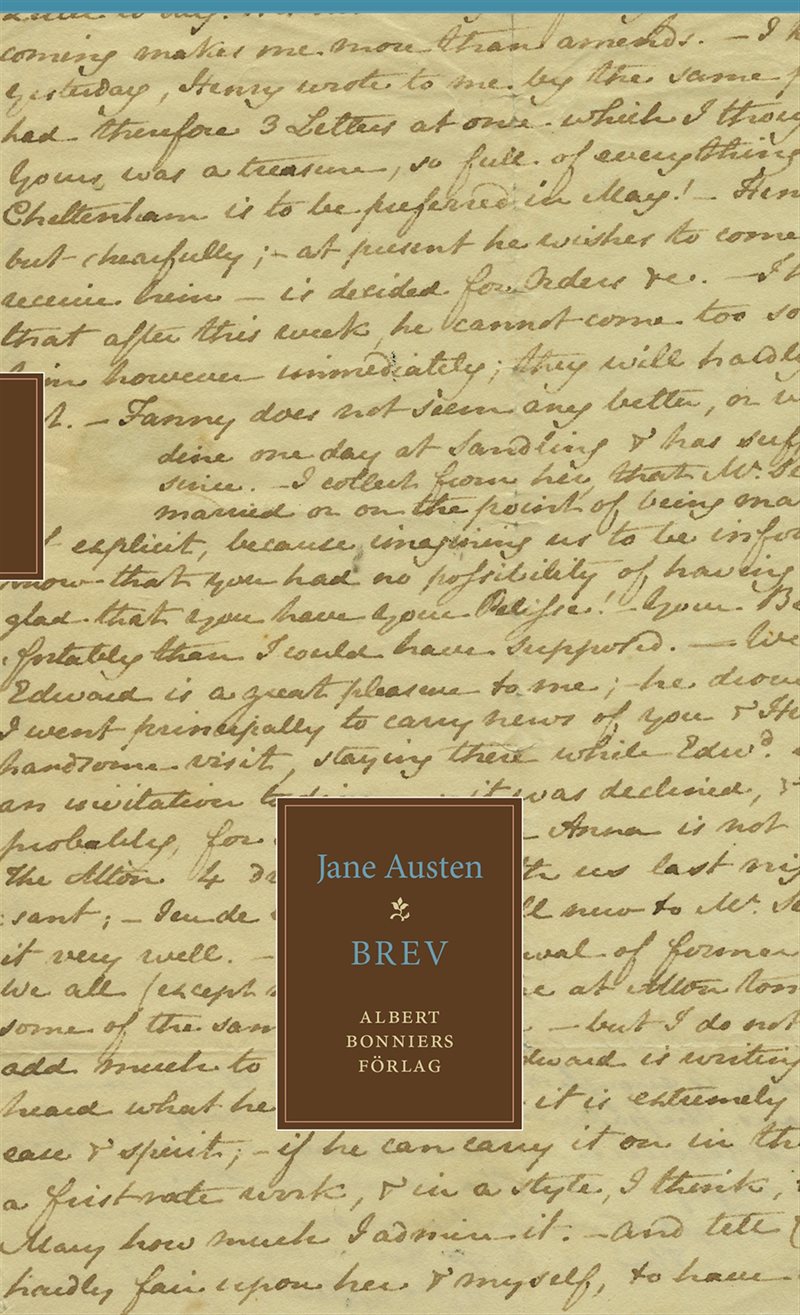 coming makes me more than amends. – I h
Yesterday, Henry wrote to me by the same p
had therefore 3 Letters at once which I thoug
Yours was a treasure, so full of everything
Cheltenham is to be preferred in May! – Hen
but chearfully; – at present he wishes to come
receive him – is decided for Orders &c. – I h
that after this week he cannot come too so
him however immediately; they will hardly
– Fanny does not seem any better, or v
dine one day at Sandling & has suff
since. – I collect from her, that Mr. Se
married or on the point of being ma
explicit, because imagining us to be infor
know that you had no possibility of having
glad that you have your Pelisse! – Your Be
fortably than I could have supposed. – We
Edward is a great pleasure to me; – he drove
I went principally to carry news of you & H
handsome visit, staying there while Edwd.
an invitation to it was declined, &
probably, for Anna is not
the Alton 4 us last nig
sant; – new to Mr. Se
it very well. – wal of former
We all (except at Alton tom
some of the sam – but I do not
add much to dward is writing
heard what he it is extremely
ease & spirit; – if he can carry it on in th
a first rate work, & in a style, I think,
Mary how much I admire it. – And tell
hardly fair upon her & myself, to have
Jane Austen
BREV
ALBERT
BONNIERS
FÖRLAG